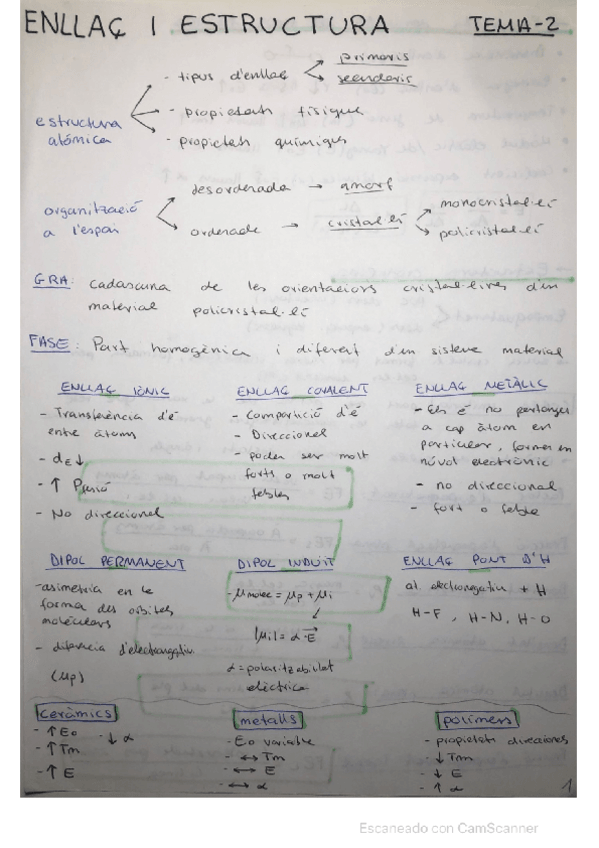 ENLLAÇ I ESTRUCTURA TEMA-2
estructura atómica
- tipus d'enllaç → primaris
→ secundaris
- propietats físique
- propietats químiques
organització a l'espai
desordenada → amorf
ordenada → cristal·lí → monocristal·lí
→ policristal·lí
GRA: cadascuna de les orientacions cristal·lines d'un
material policristal·lí
FASE: Part homogènica i diferent d'un sistema material
ENLLAÇ IÒNIC
- Transferència d'é
entre àtoms
- dE↓
- ↑ Pfusió
- No direccional
ENLLAÇ COVALENT
- Compartició d'é
- Direccional
- poden ser molt
forts o molt
febles
ENLLAÇ METÀL·LIC
- Els é no pertanyen
a cap àtom en
particular, formen un
núvol electrònic
- no direccional
- fort o feble
DIPOL PERMANENT
- asimetria en la
forma des orbitals
moleculars
- diferència d'electronegativ
(μp)
DIPOL INDUÏT
- μmolec = μp + μi
|μi| = α·E
α = polaritzabilitat
elèctrica
ENLLAÇ PONT D'H
at. electronegatiu + H
H-F, H-N, H-O
ceràmics
- ↑ Eo - ↓ α
- ↑ Tm
- ↑ E
metalls
- Eo variable
- ↔ Tm
- ↔ E
- ↔ α
polímers
- propietats direccionals
- ↓ Tm
- ↓ E
- ↑ α
1
Escaneado con CamScanner